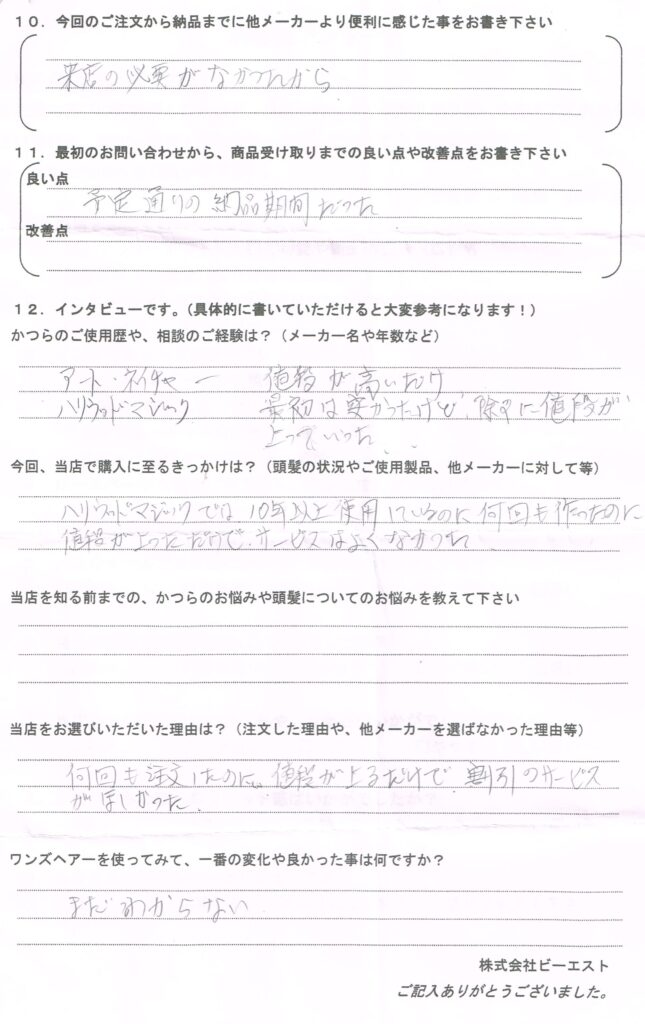 １０．今回のご注文から納品までに他メーカーより便利に感じた事をお書き下さい
来店の必要がなかったから
１１．最初のお問い合わせから、商品受け取りまでの良い点や改善点をお書き下さい
良い点
予定通りの納品期間だった
改善点
１２．インタビューです。（具体的に書いていただけると大変参考になります！）
かつらのご使用歴や、相談のご経験は？（メーカー名や年数など）
アート・ネイチャー 値段が高いだけ
ハリウッドマジック 最初は安かったけど、除々に値段が
上っていった
今回、当店で購入に至るきっかけは？（頭髪の状況やご使用製品、他メーカーに対して等）
ハリウッドマジックでは10年以上使用しているのに何回も作ったのに
値段が上っただけで、サービスはよくなかった
当店を知る前までの、かつらのお悩みや頭髪についてのお悩みを教えて下さい
当店をお選びいただいた理由は？（注文した理由や、他メーカーを選ばなかった理由等）
何回も注文したのに、値段が上るだけで 割引のサービス
がほしかった．
ワンズヘアーを使ってみて、一番の変化や良かった事は何ですか？
まだわからない
株式会社ビーエスト
ご記入ありがとうございました。